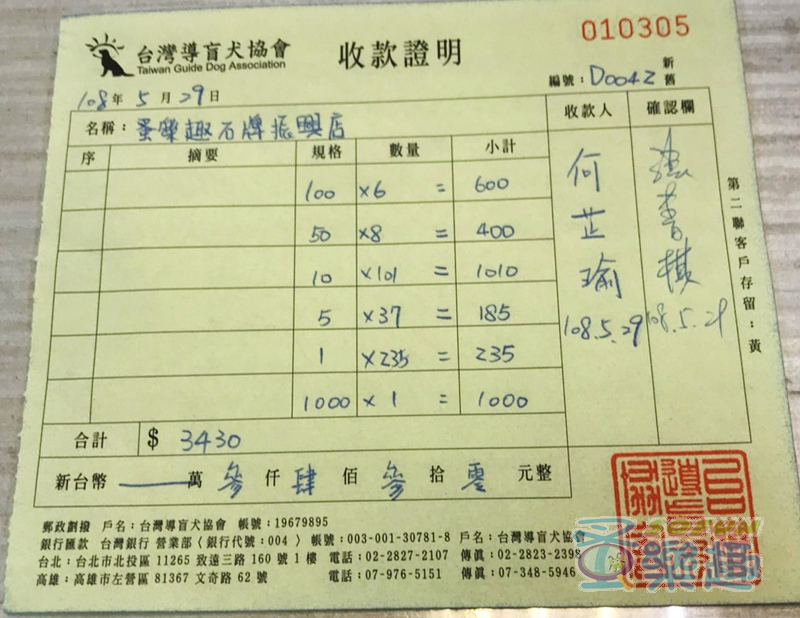 台灣導盲犬協會
Taiwan Guide Dog Association
收款證明
010305
編號：D0042 新舊
108年 5 月 29日
名稱：蛋樂趣石牌振興店
收款人 確認欄
序 摘要 規格 數量 小計
100 ×6 = 600
50 ×8 = 400
10 ×101 = 1010
5 ×37 = 185
1 ×235 = 235
1000 ×1 = 1000
何芷瑜
108.5.29
108.5.29
第二聯客戶存留：黃
合計 $ 3430
新台幣 — 萬 參 仟 肆 佰 參 拾 零 元整
郵政劃撥 戶名：台灣導盲犬協會 帳號：19679895
銀行匯款 台灣銀行 營業部〈銀行代號：004〉 帳號：003-001-30781-8 戶名：台灣導盲犬協會
台北：台北市北投區 11265 致遠三路 160 號 1 樓 電話：02-2827-2107 傳真：02-2823-2398
高雄：高雄市左營區 81367 文奇路 62 號 電話：07-976-5151 傳真：07-348-5946
蛋樂趣